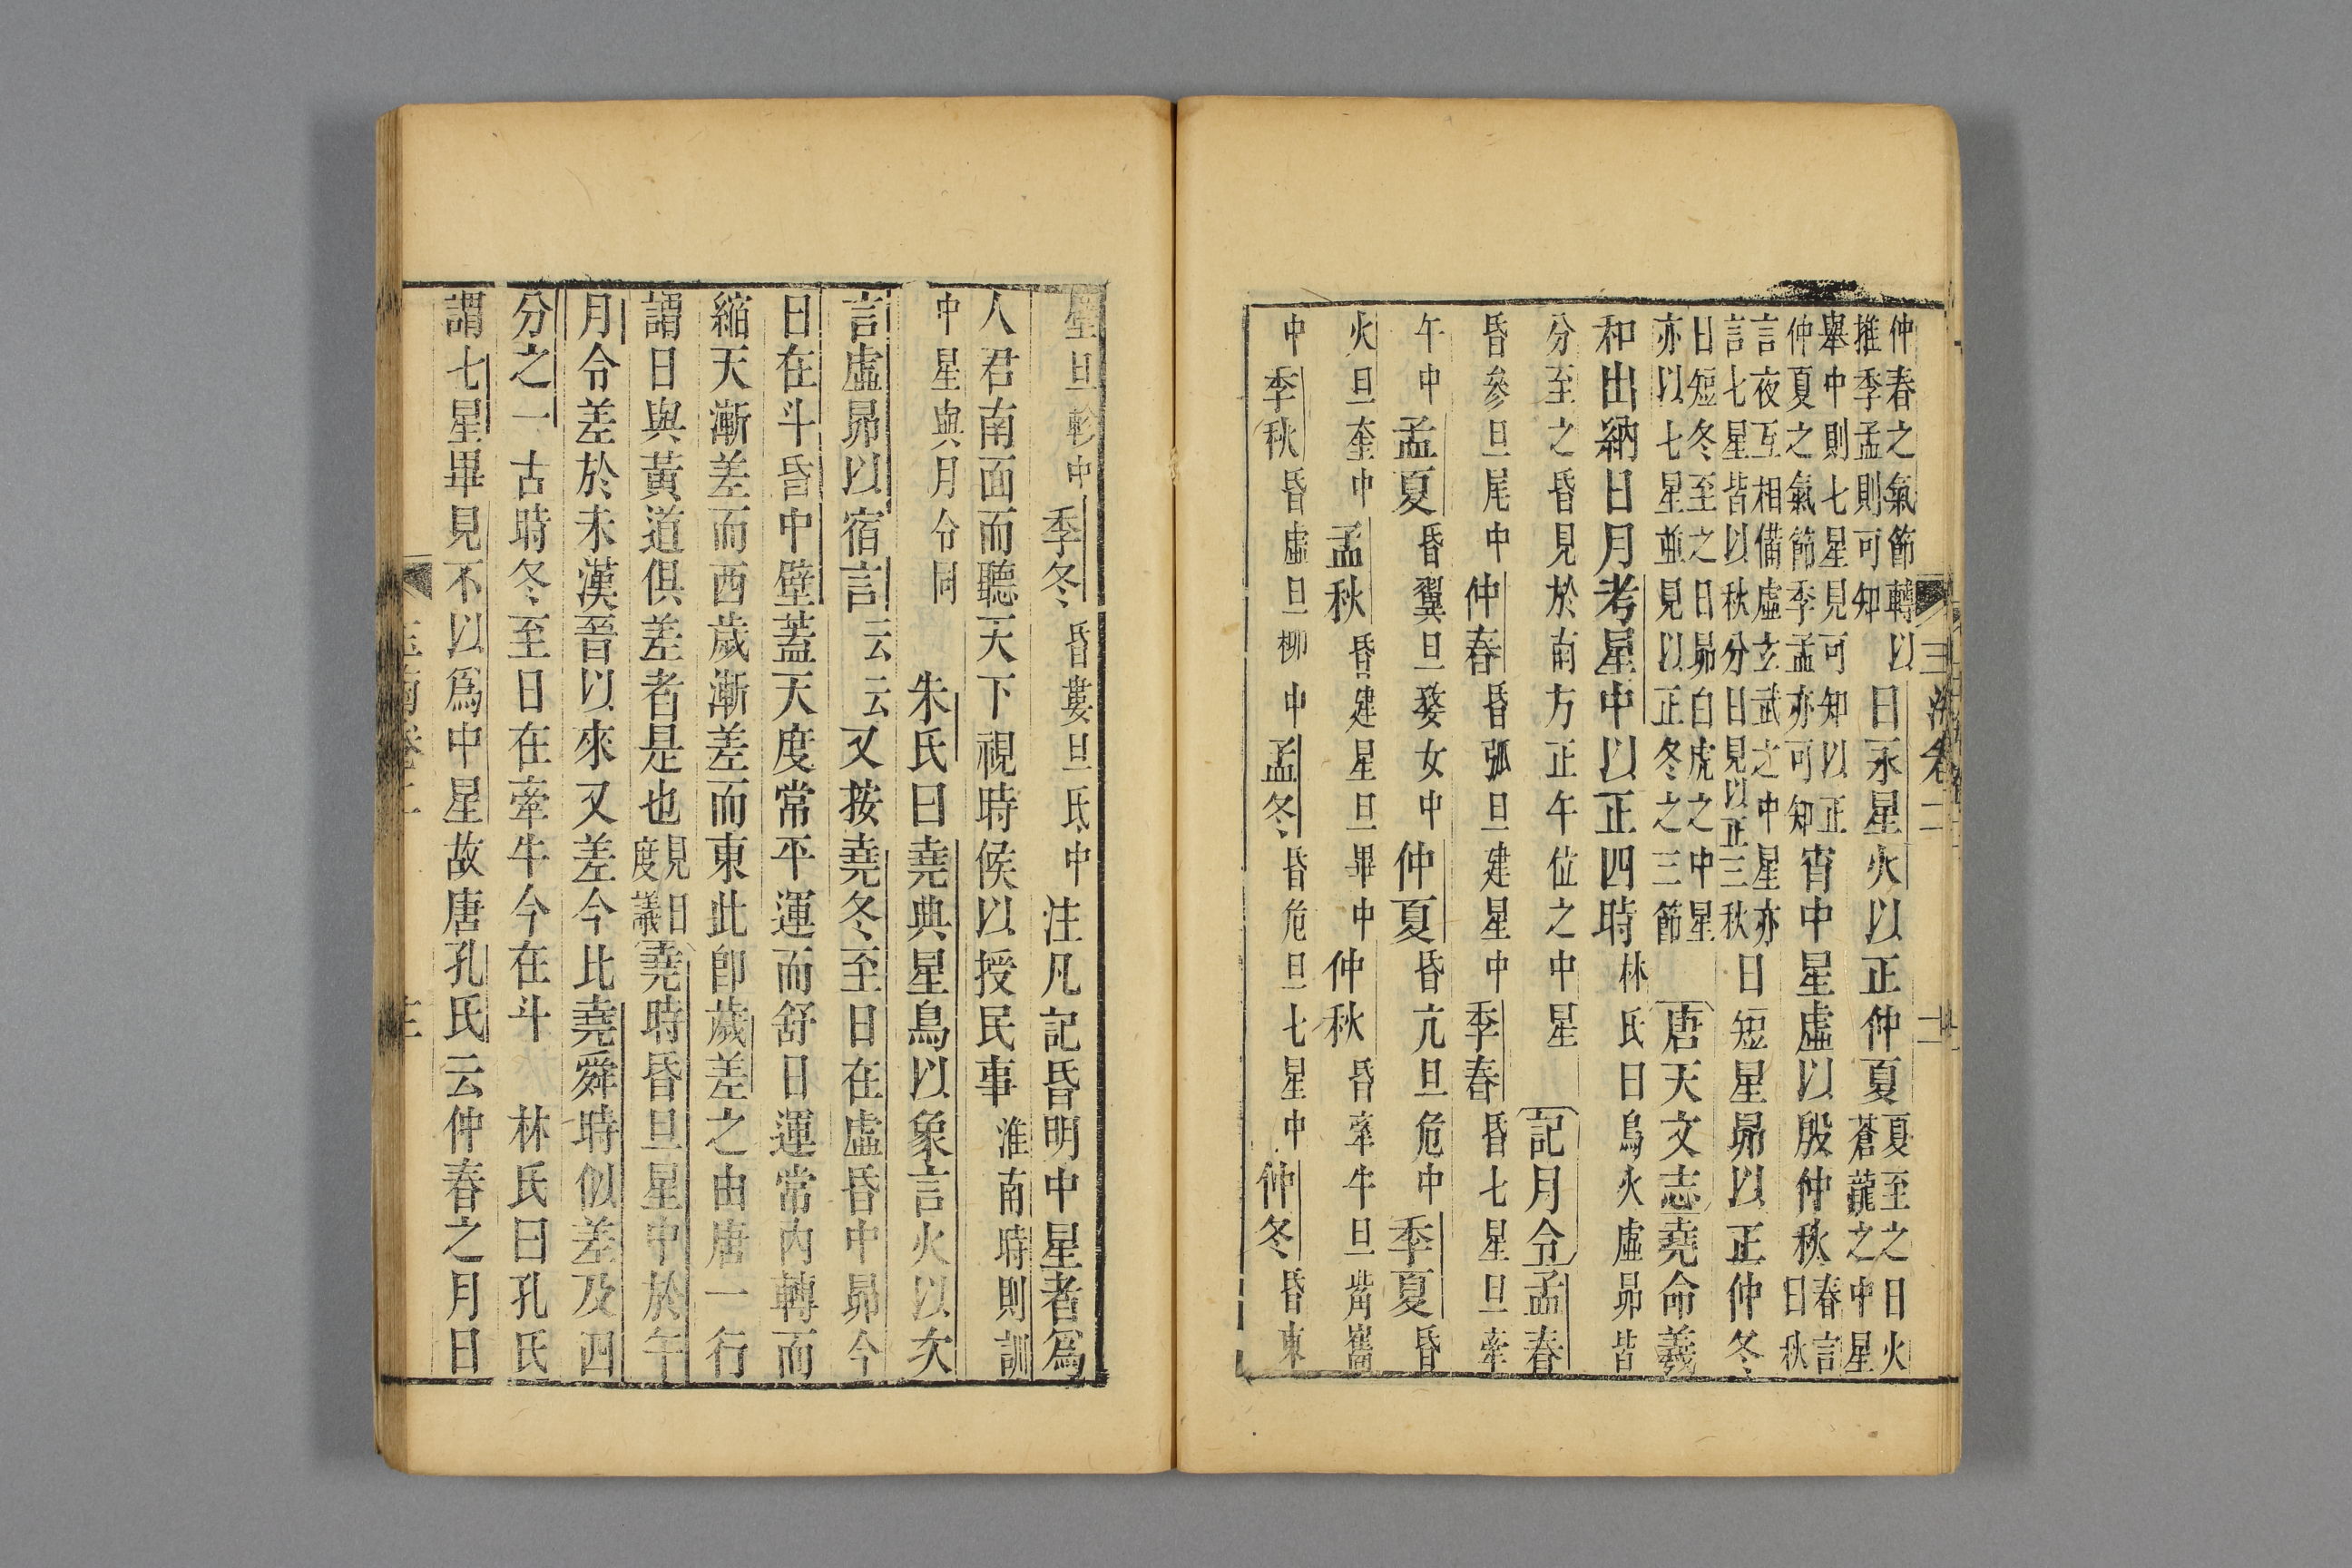 仲春之氣節轉以
推季孟則可知
日永星火以正仲夏
夏至之日火
蒼龍之中星
舉中則七星見可知以正
仲夏之氣節季孟亦可知
宵中星虛以殷仲秋
春言
日秋
言夜互相備虛玄武之中星亦
言七星皆以秋分日見以正三秋
日短星昴以正仲冬
日短冬至之日昴白虎之中星
亦以七星並見以正冬之三節
唐天文志堯命羲
和出納日月考星中以正四時林氏曰鳥火虛昴皆
分至之昏見於南方正午位之中星 記月令孟春
昏參旦尾中仲春昏弧旦建星中季春昏七星旦牽
午中孟夏昏翼旦婺女中仲夏昏亢旦危中季夏昏
火旦奎中孟秋昏建星旦畢中仲秋昏牽牛旦觜觿
中季秋昏虛旦柳中孟冬昏危旦七星中仲冬昏東
壁旦軫中季冬昏婁旦氐中注凡記昏明中星者爲
人君南面而聽天下視時候以授民事淮南時則訓
中星與月令同 朱氏曰堯典星鳥以象言火以次
言虛昴以宿言云云又按堯冬至日在虛昏中昴今
日在斗昏中壁蓋天度常平運而舒日運常內轉而
縮天漸差而西歲漸差而東此卽歲差之由唐一行
謂日與黃道俱差者是也
見日
度議
堯時昏旦星中於午
月令差於未漢晉以來又差今比堯舜時似差及四
分之一古時冬至日在牽牛今在斗 林氏曰孔氏
謂七星畢見不以爲中星故唐孔氏云仲春之月日